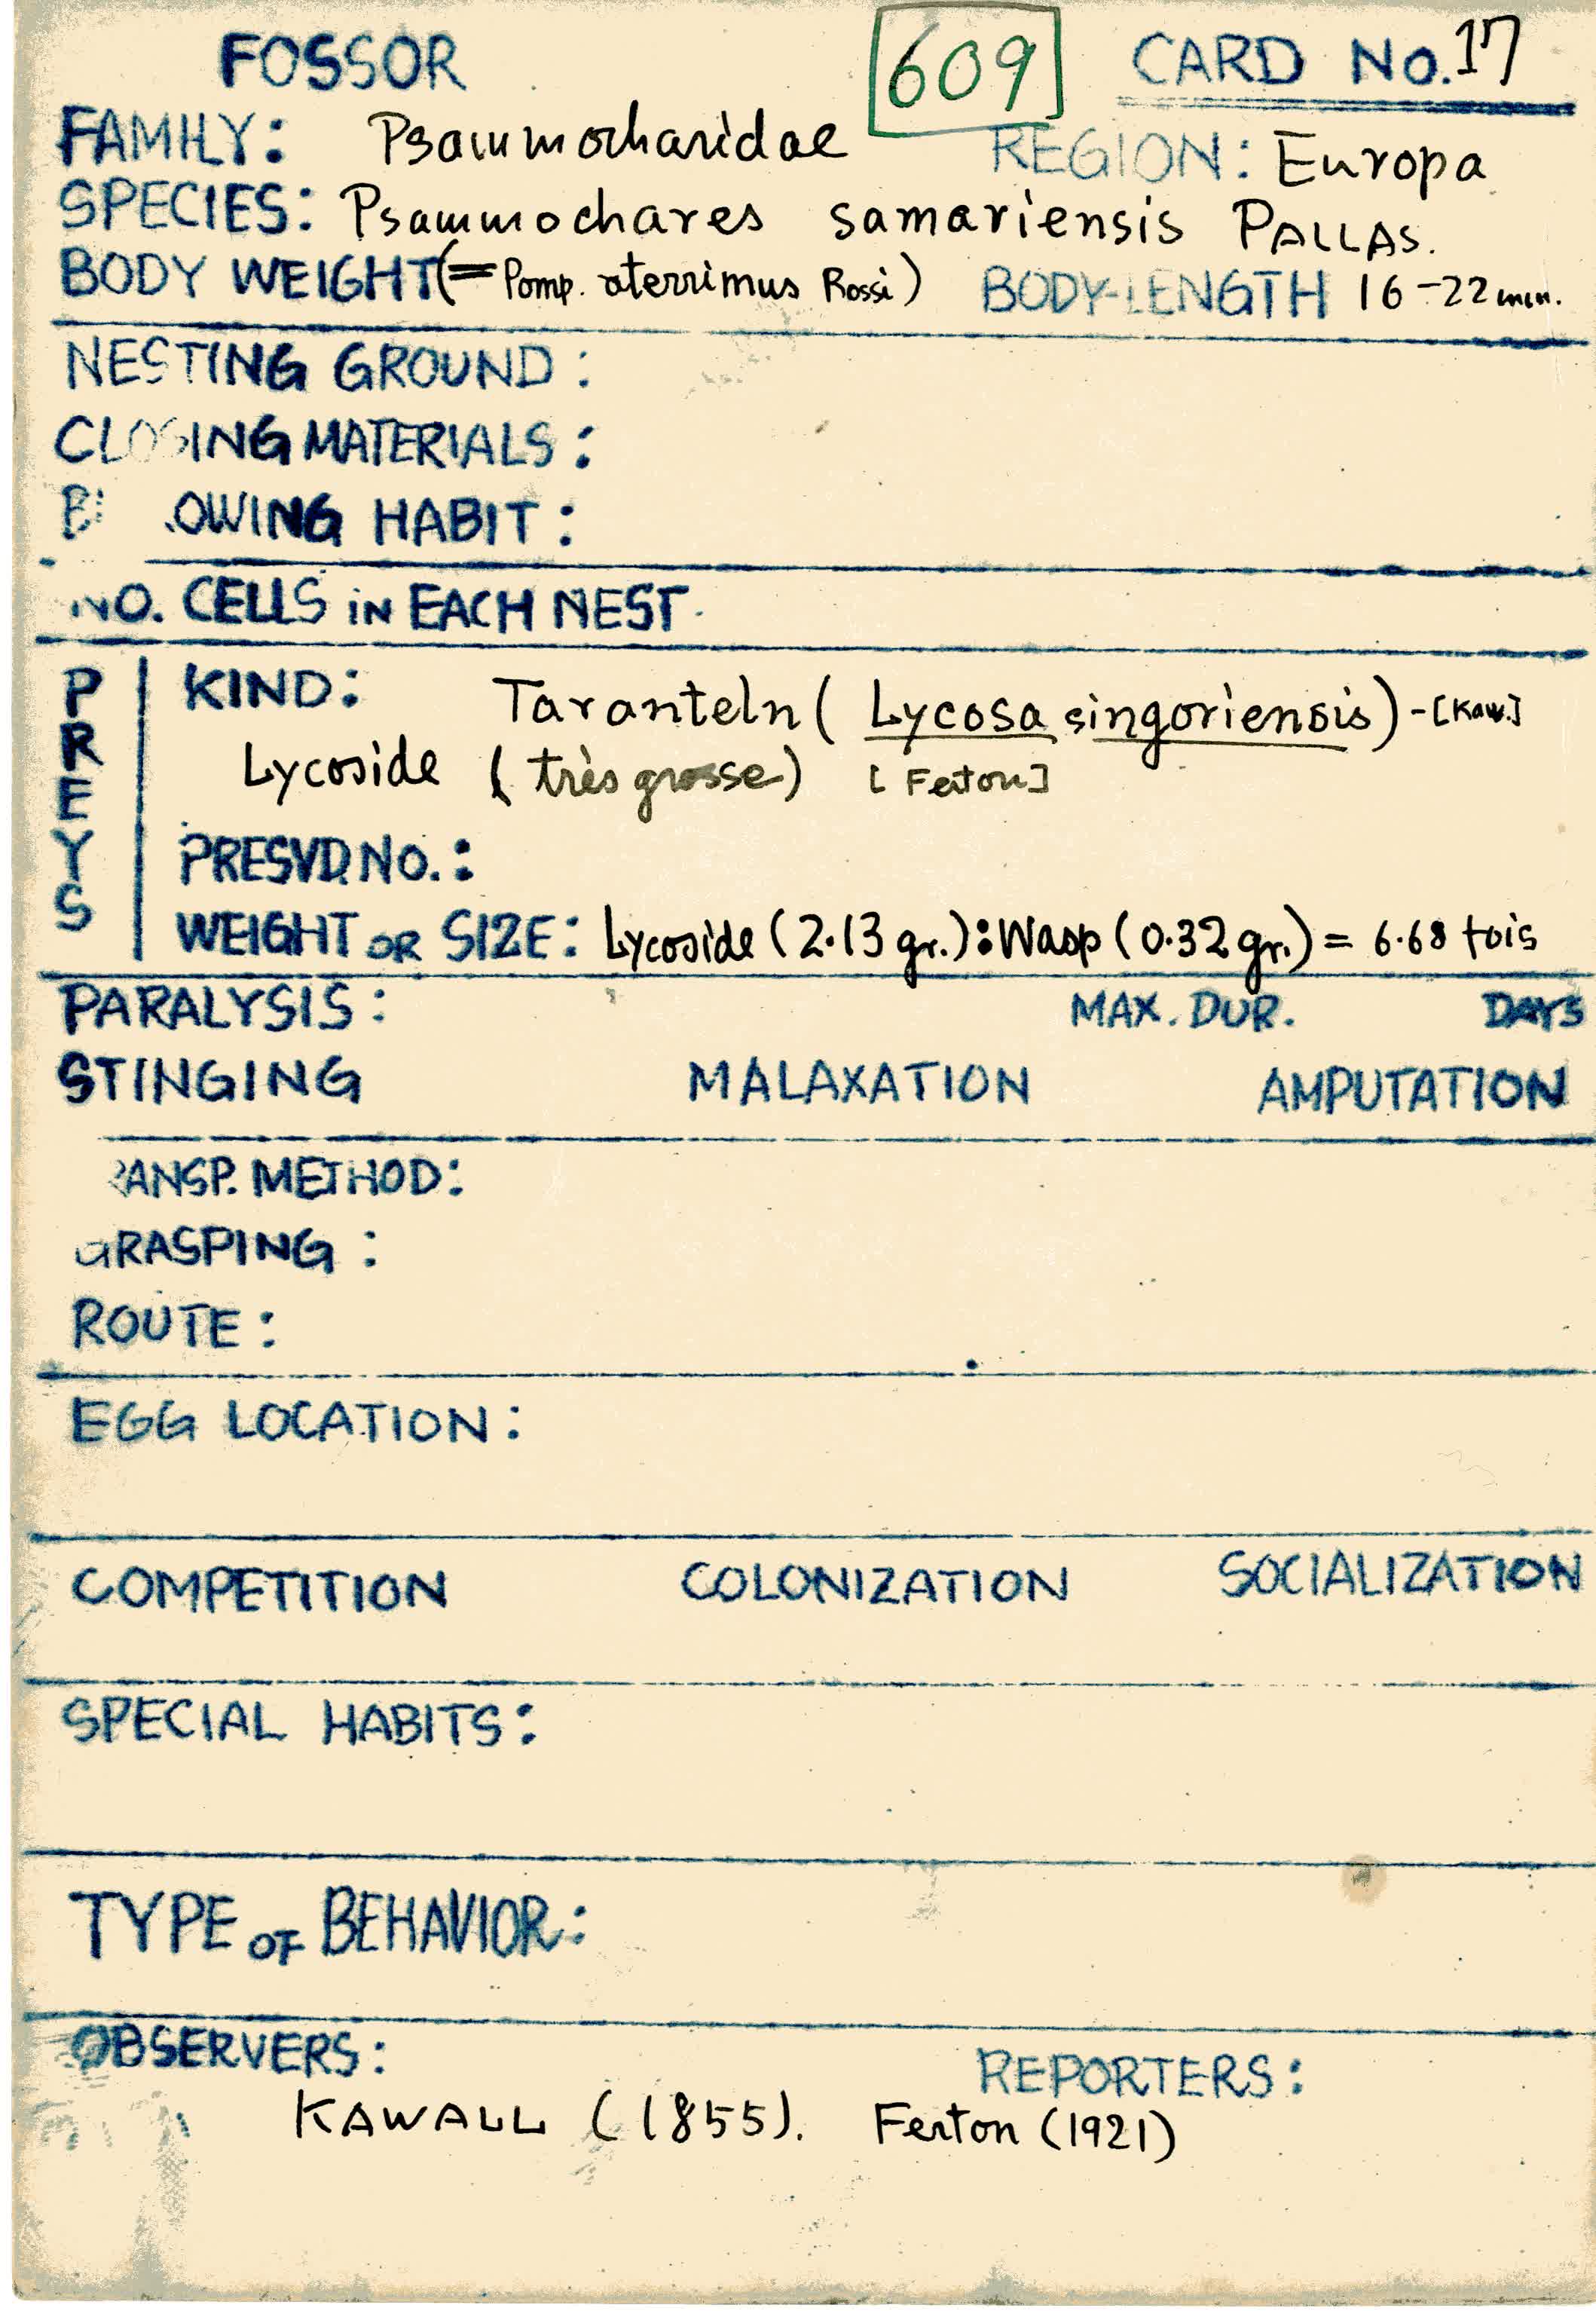 FOSSOR 609 CARD No. 17
FAMILY: Psammocharidae REGION: Europa
SPECIES: Psammochares samariensis PALLAS.
BODY WEIGHT (= Pomp. aterrimus Rossi) BODY-LENGTH 16-22 mm.
NESTING GROUND:
CLOSING MATERIALS:
OWING HABIT:
NO. CELLS iN EACH NEST.
PREYS
KIND: Taranteln ( Lycosa singoriensis) - [Kaw.]
Lycoside ( très grosse) [ Ferton ]
PRESVD. NO.:
WEIGHT OR SIZE: Lycoside (2.13 gr.): Wasp (0.32 gr.) = 6.68 fois
PARALYSIS: MAX. DUR. DAYS
STINGING MALAXATION AMPUTATION
RANSP. METHOD:
GRASPING :
ROUTE :
EGG LOCATION :
COMPETITION COLONIZATION SOCIALIZATION
SPECIAL HABITS:
TYPE OF BEHAVIOR:
OBSERVERS: REPORTERS:
KAWALL (1855). Ferton (1921)